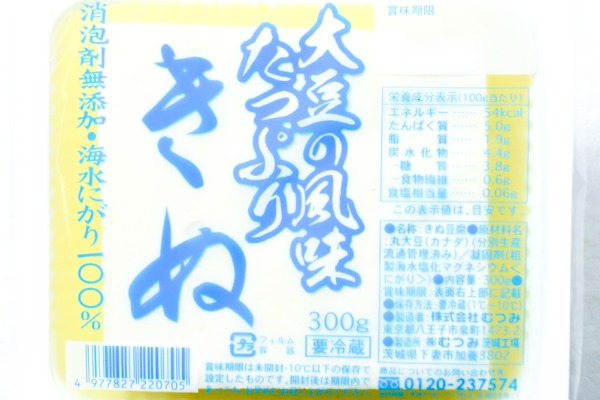 消泡剤無添加・海水にがり一〇〇%
きぬ
大豆の風味
たっぷり
賞味期限
栄養成分表示(100g当たり)
エネルギー……54kcal
たんぱく質……5.0g
脂質……1.9g
炭水化物……4.4g
－糖質……3.8g
－食物繊維……0.6g
食塩相当量……0.06g
この表示値は、目安です。
●名称:きぬ豆腐●原材料名:
丸大豆(カナダ)(分別生産
流通管理済み)/凝固剤(粗
製海水塩化マグネシウム<
にがり>)●内容量:300g●
賞味期限:表面右上部に記載
●保存方法:要冷蔵(1℃~10℃)
●製造者:株式会社むつみ
東京都八王子市泉町1473-2
●製造所:㈱むつみ茨城工場
茨城県下妻市加養3802
商品についてのお問い合わせ先
0120-237574
300g
プラ
フィルム
容器
要冷蔵
賞味期限は未開封・10℃以下の保存で
設定したものです。開封後は期限内で
4 977827 220705